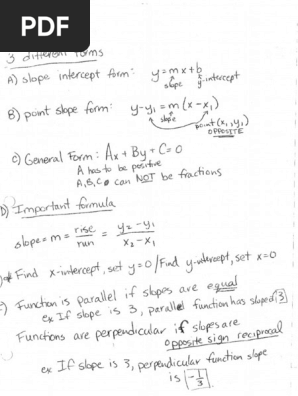 PDF
3 different forms
A) slope intercept form: y = mx + b
slope y-intercept
B) point slope form: y-y₁ = m(x - x₁)
slope point (x₁, y₁)
OPPOSITE
C) General Form: Ax + By + C = 0
A has to be positive
A, B, C, can NOT be fractions
D) Important formula
slope = m = rise/run = y₂ - y₁/x₂ - x₁
* Find x-intercept, set y=0/Find y-intercept, set x=0
) Function is parallel if slopes are equal
ex If slope is 3, parallel function has slope 3
Functions are perpendicular if slopes are
opposite sign reciprocal
ex If slope is 3, perpendicular function slope
is -1/3